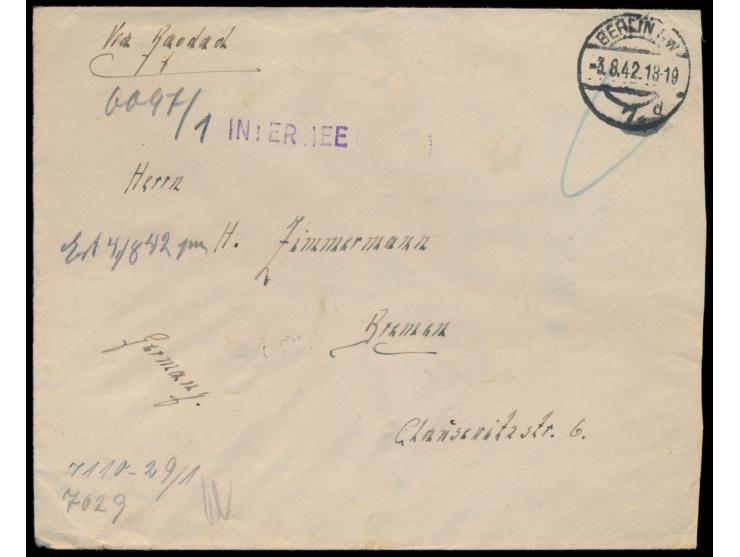 Via Bagdad
BERLIN
-3.8.42.18-19
d
6047/1
INTERNEE
Herrn
4/8 42
H. Zimmermann
Bremen
Germany.
Clausewitzstr. 6.
7110-29/1
7029